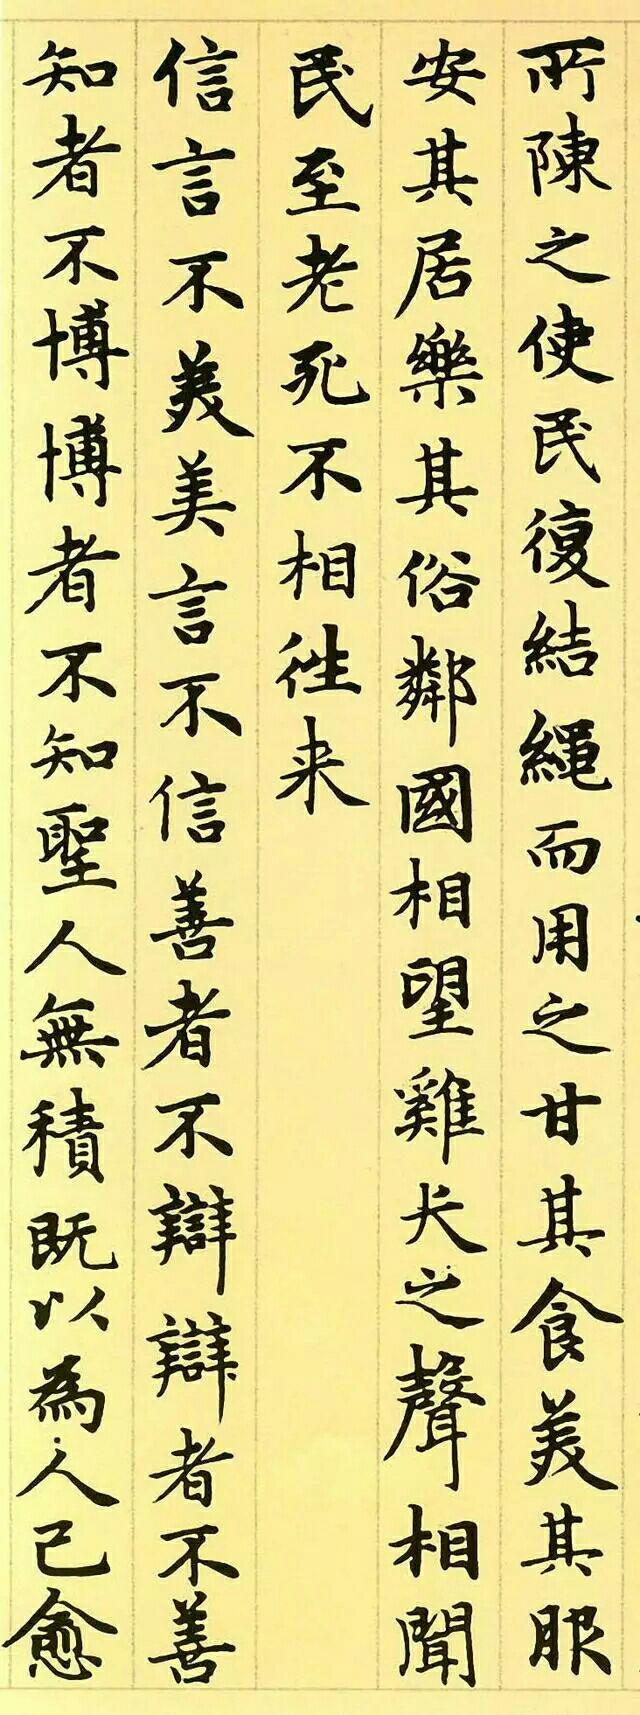 所陳之使民復結繩而用之甘其食美其服
安其居樂其俗鄰國相望雞犬之聲相聞
民至老死不相往来
信言不美美言不信善者不辯辯者不善
知者不博博者不知聖人無積既以為人己愈